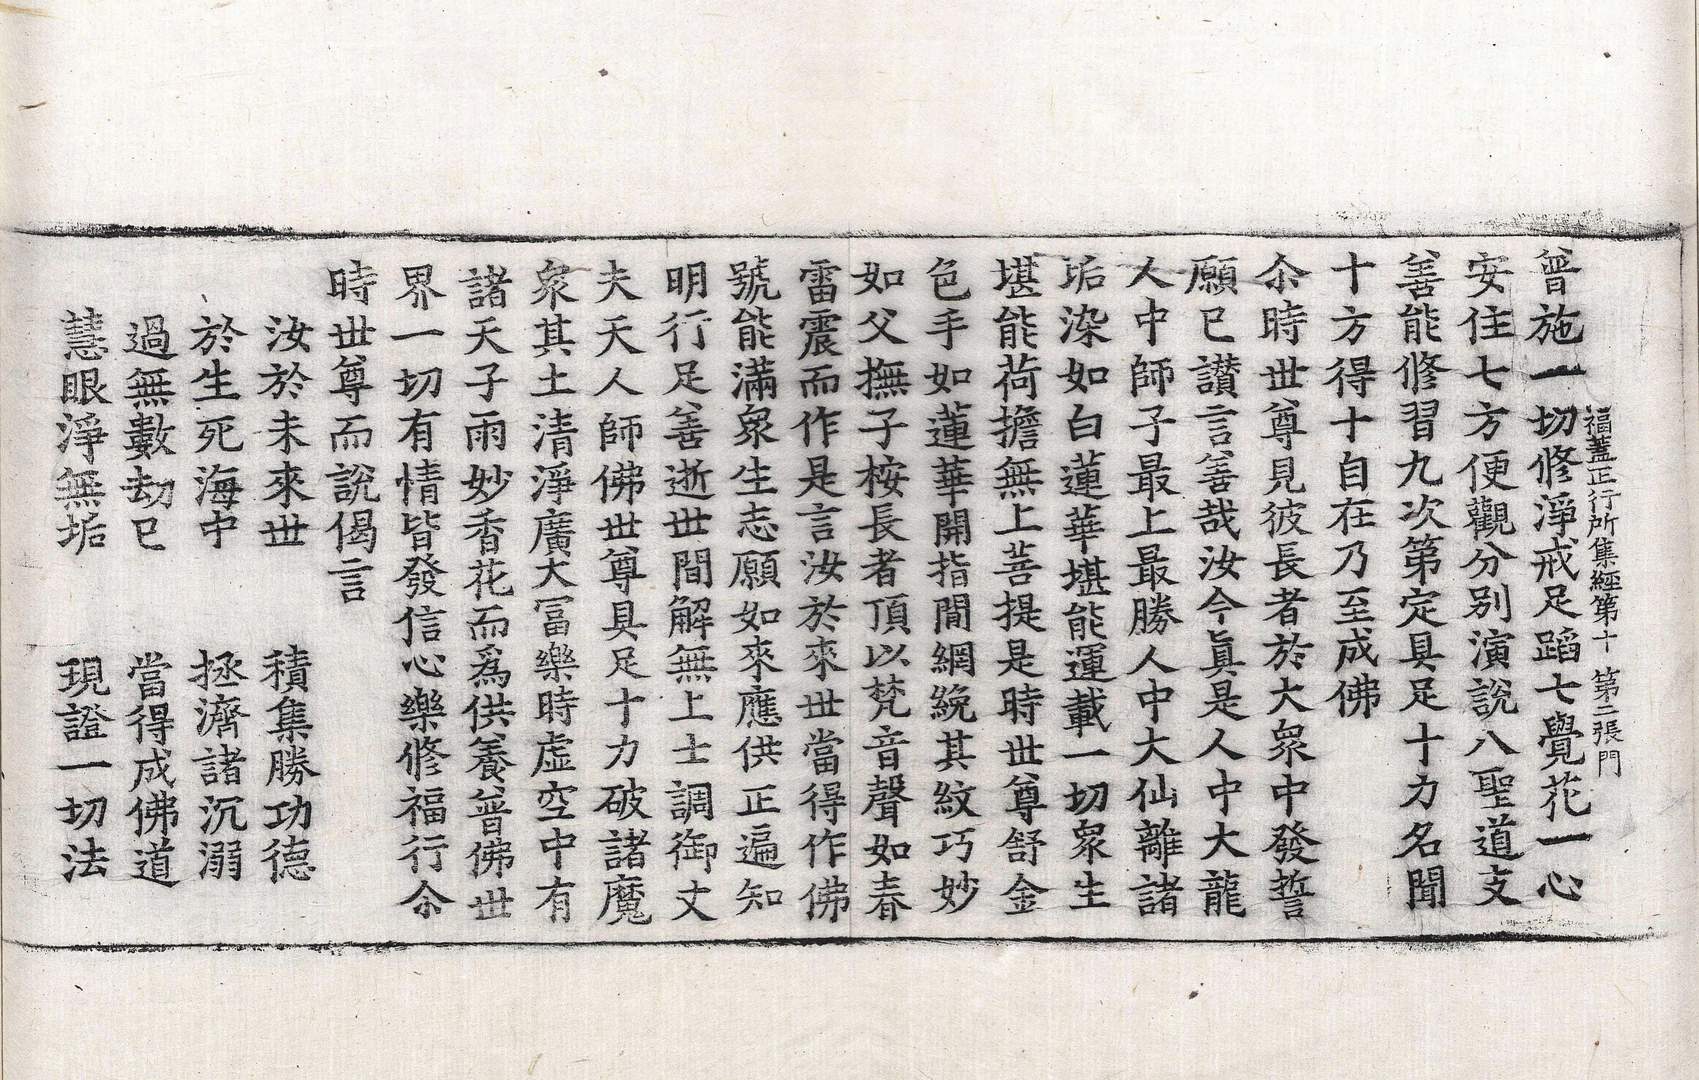 福蓋正行所集經第十 第二張 門
普施一切修淨戒足蹈七覺花一心
安住七方便觀分別演說八聖道支
善能修習九次第定具足十力名聞
十方得十自在乃至成佛
尒時世尊見彼長者於大衆中發誓
願已讃言善哉汝今眞是人中大龍
人中師子最上最勝人中大仙離諸
垢染如白蓮華堪能運載一切衆生
堪能荷擔無上菩提是時世尊舒金
色手如蓮華開指間網綄其紋巧妙
如父撫子桉長者頂以梵音聲如春
雷震而作是言汝於來世當得作佛
號能滿衆生志願如來應供正遍知
明行足善逝世間解無上士調御丈
夫天人師佛世尊具足十力破諸魔
衆其土清淨廣大冨樂時虛空中有
諸天子雨妙香花而爲供養普佛世
界一切有情皆發信心樂修福行尒
時世尊而說偈言
汝於未來世 積集勝功德
於生死海中 拯濟諸沉溺
過無數劫已 當得成佛道
慧眼淨無垢 現證一切法